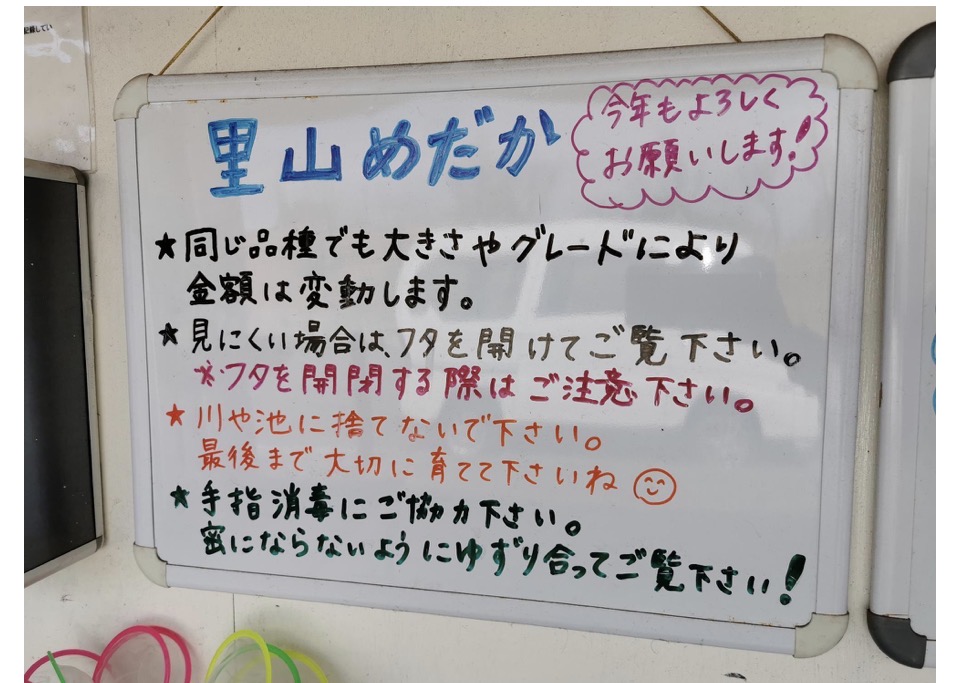 記録してい
里山めだか
今年もよろしく
お願いします!
★同じ品種でも大きさやグレードにより
金額は変動します。
★見にくい場合は、フタを開けてご覧下さい。
※フタを開閉する際はご注意下さい。
★川や池に捨てないで下さい。
最後まで大切に育てて下さいね
★手指消毒にご協力下さい。
密にならないようにゆずり合ってご覧下さい!